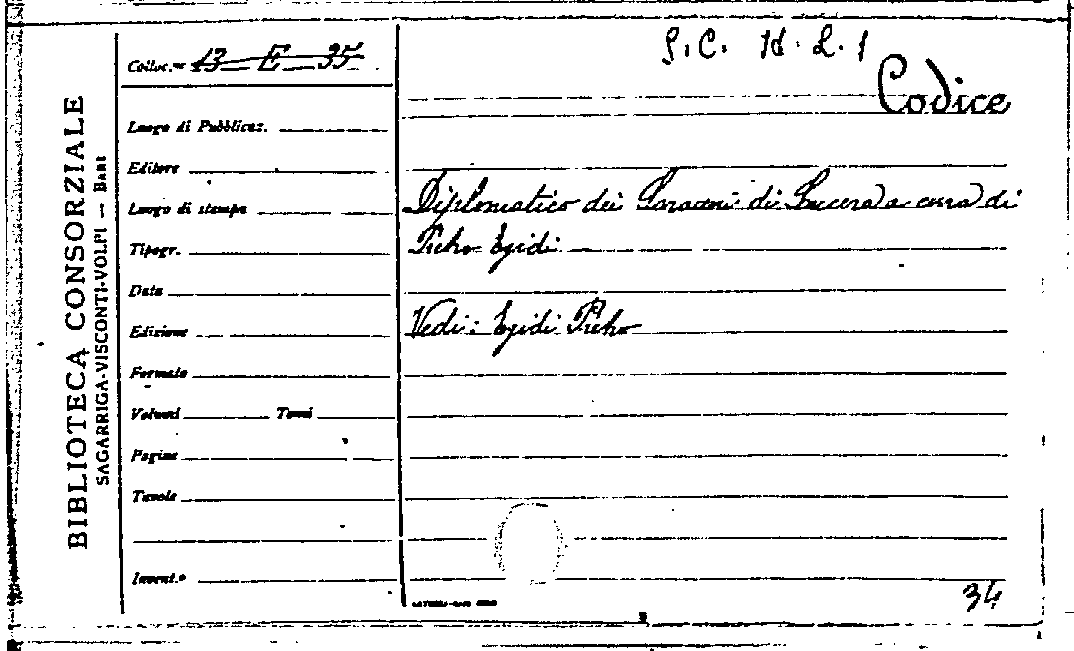 BIBLIOTECA CONSORZIALE
SAGARRIGA-VISCONTI-VOLPI — BARI
Colloc.ne 13 E 35
S.C. Id. L. 1
Codice
Luogo di Pubblicaz.
Editore
Luogo di stampa
Diplomatico dei Saraceni di Lucera a cura di
Tipogr.
Pietro Egidi
Data
Edizione
Vedi: Egidi Pietro
Formato
Volumi Tomi
Pagine
Tavole
Invent.o
34